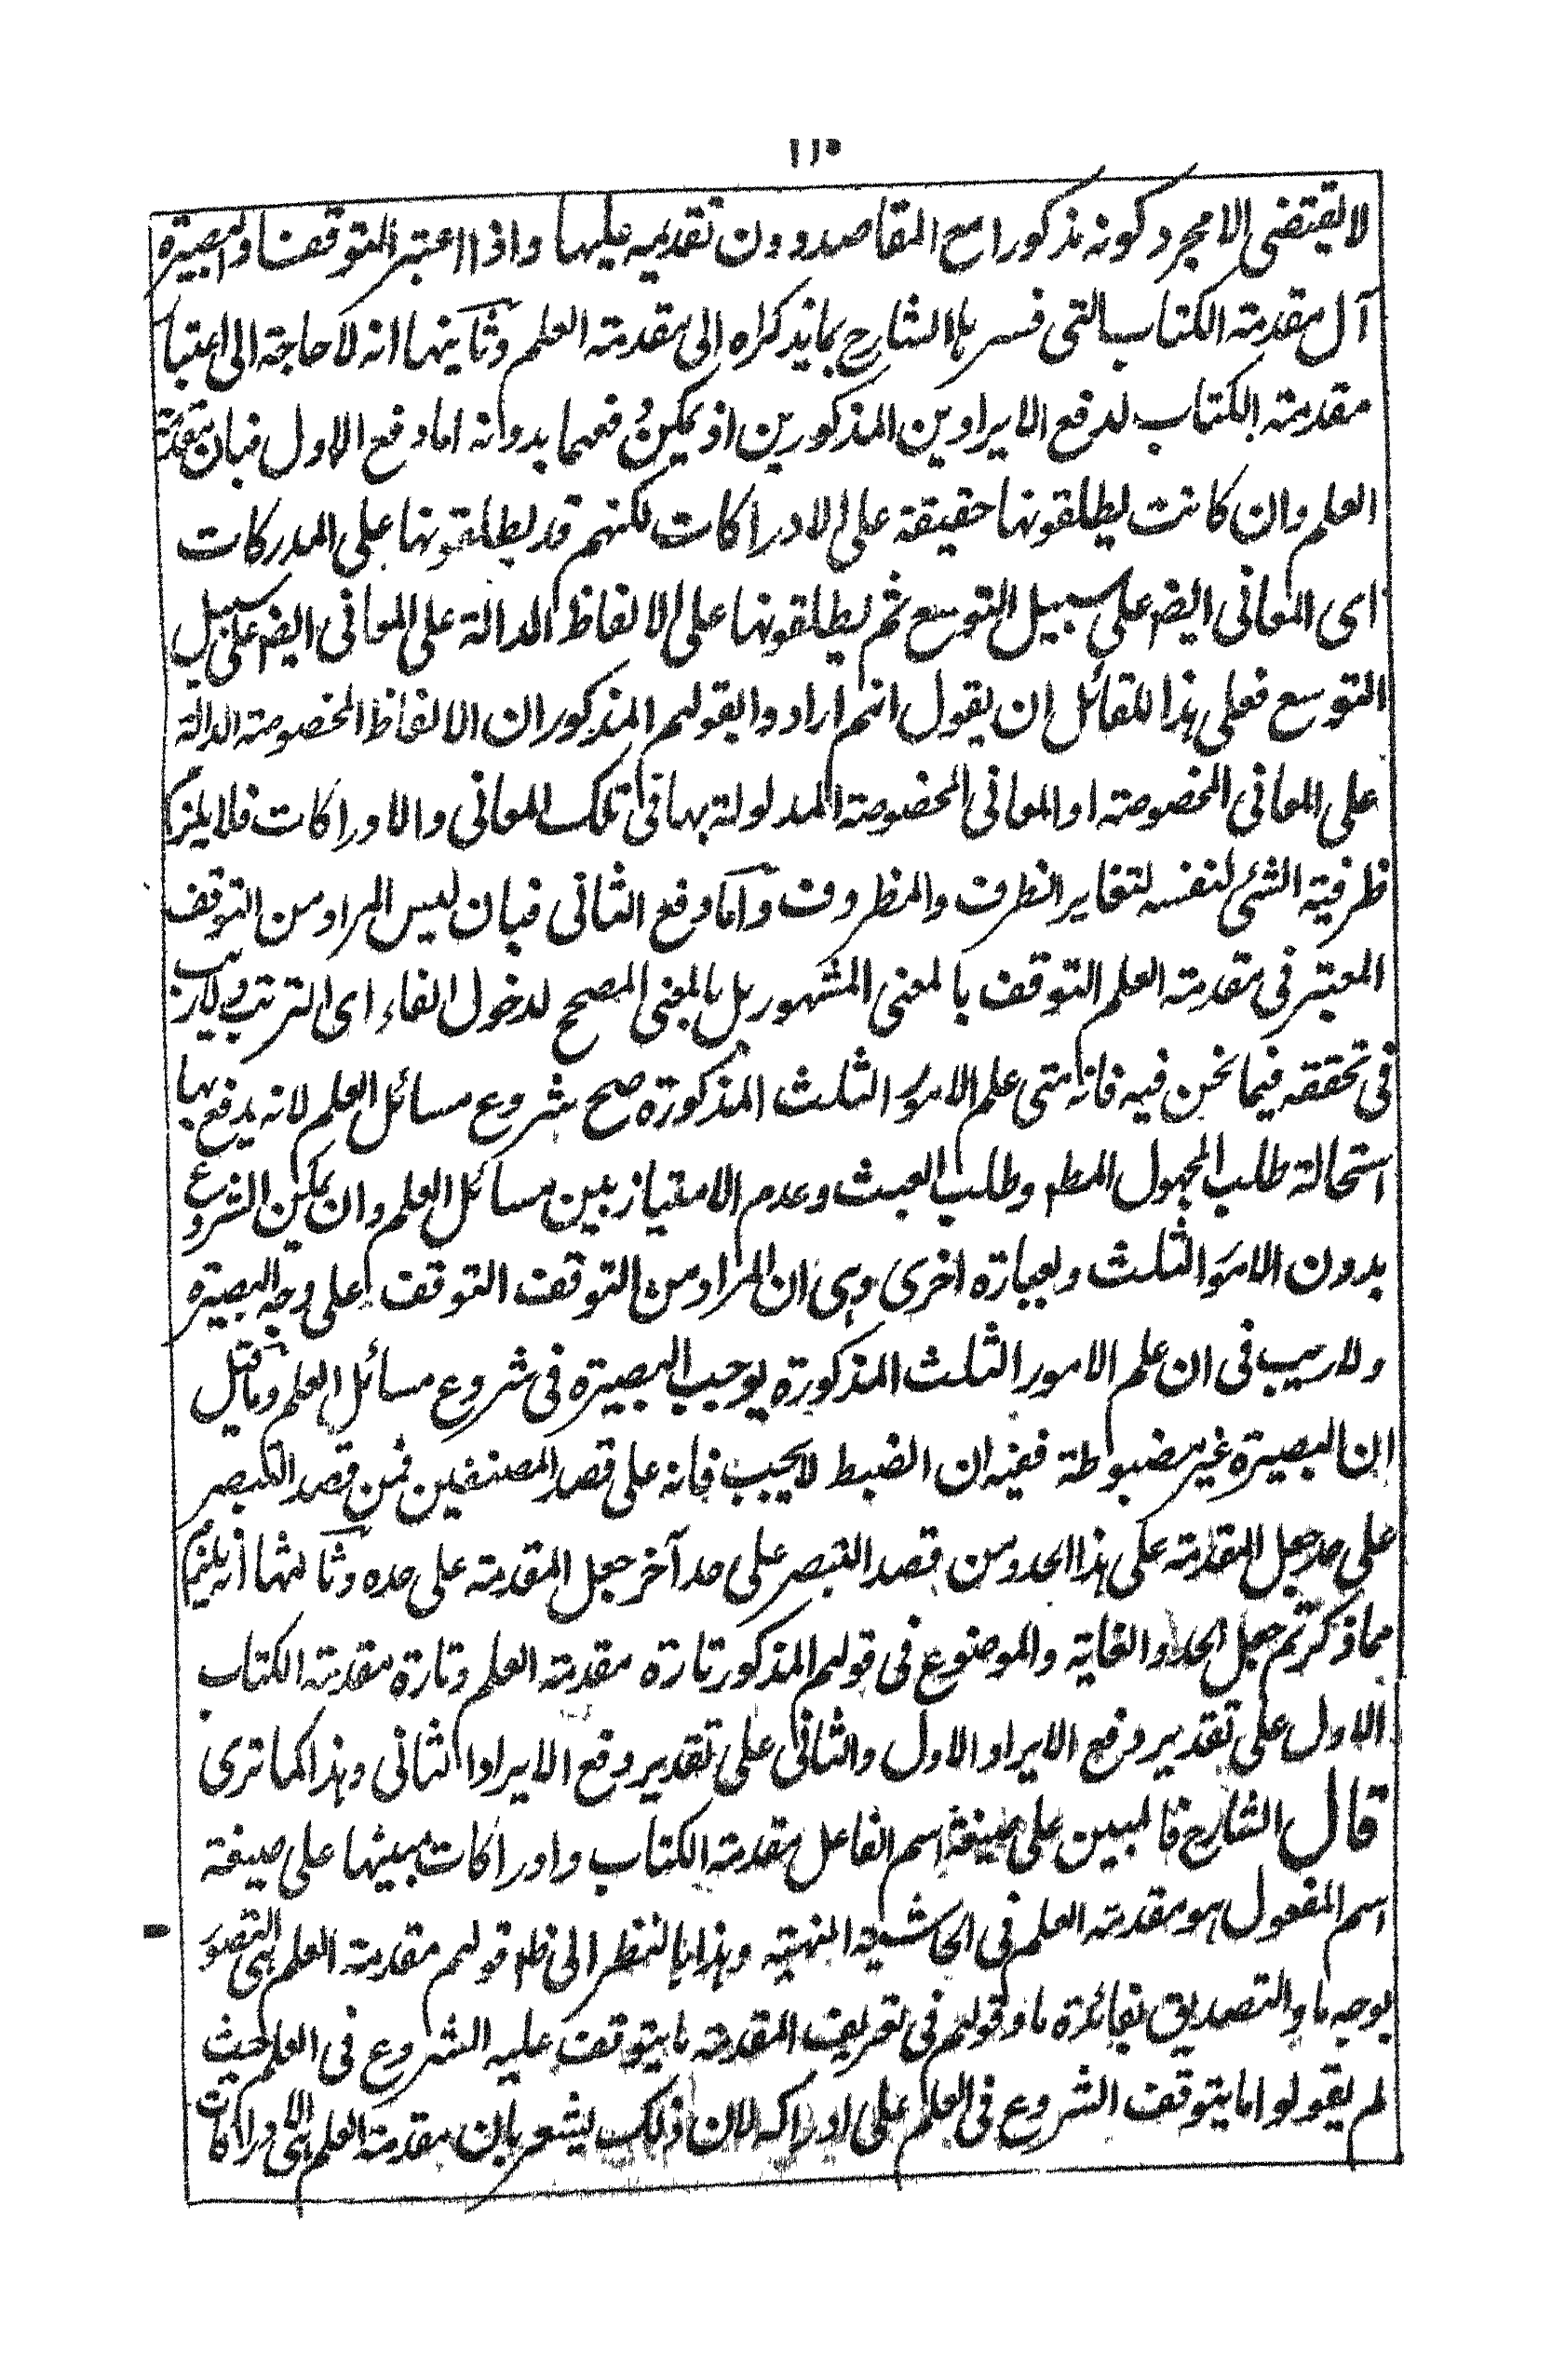 ١١٠
لا يقتضى الا مجرد كونه مذكورا مع المقاصد دون تقديمه عليها واذا اعتبر التوقف والبصيرة
آل مقدمة الكتاب التى فسر بها الشارح بما يذكراه الى مقدمة العلم وثانيها انه لا حاجة الى اعتبا
مقدمة الكتاب لدفع الايرادين المذكورين اذ يمكن دفعهما بدوانه اما دفع الاول فبان مقدمة
العلم وان كانت يطلقونها حقيقة على الادراكات لكنهم قد يطلقونها على المدركات
اى المعانى ايضا على سبيل التوسع ثم يطلقونها على الالفاظ الدالة على المعانى ايضا على سبيل
التوسع فعلى هذا للقائل ان يقول انهم ارادوا بقولهم المذكور ان الالفاظ المخصوصة الدالة
على المعانى المخصوصة او المعانى المخصوصة المدلولة بها فى تلك المعانى والادراكات فلا يلزم
ظرفية الشئ لنفسه لتغاير الظرف والمظروف وآما دفع الثانى فبان ليس المراد من التوقف
المعتبر فى مقدمة العلم التوقف بالمعنى المشهور بل بالمعنى المصحح لدخول الفاء اى الترتب ولا ريب
فى تحققه فيما نحن فيه فانه متى علم الامور الثلث المذكورة صح شروع مسائل العلم لانه يدفع بها
استحالة طلب المجهول المطم وطلب العبث وعدم الامتياز بين مسائل العلم وان يمكن الشروع
بدون الامور الثلث وبعبارة اخرى وهى ان المراد من التوقف التوقف على وجه البصيرة
ولا ريب فى ان علم الامور الثلث المذكورة يوجب البصيرة فى شروع مسائل العلم وما قيل
ان البصيرة غير مضبوطة ففيه ان الضبط لا يجب فانه على قصد المصنفين فمن قصد التبصر
على حد جعل المقدمة على هذا الحد ومن قصد التبصر على حد آخر جعل المقدمة على حده وثالثها انه يلزم
مما ذكرتم جعل الحد والغاية والموضوع فى قولهم المذكور تارة مقدمة العلم وتارة مقدمة الكتاب
الاول على تقدير دفع الايراد الاول والثانى على تقدير دفع الايراد الثانى وهذا كما ترى
قال الشارح فالمبين على صيغة اسم الفاعل مقدمة الكتاب وادراكات مبينها على صيغة
اسم المفعول هو مقدمة العلم فى الحاشية المنهية وهذا بالنظر الى ظاهر قولهم مقدمة العلم هى التصور
بوجه ما والتصديق بفائدة ما وقولهم فى تعريف المقدمة ما يتوقف عليه الشروع فى العلم حيث
لم يقولوا ما يتوقف الشروع فى العلم على ادراكه لان ذلك يشعر بان مقدمة العلم هى الادراكات